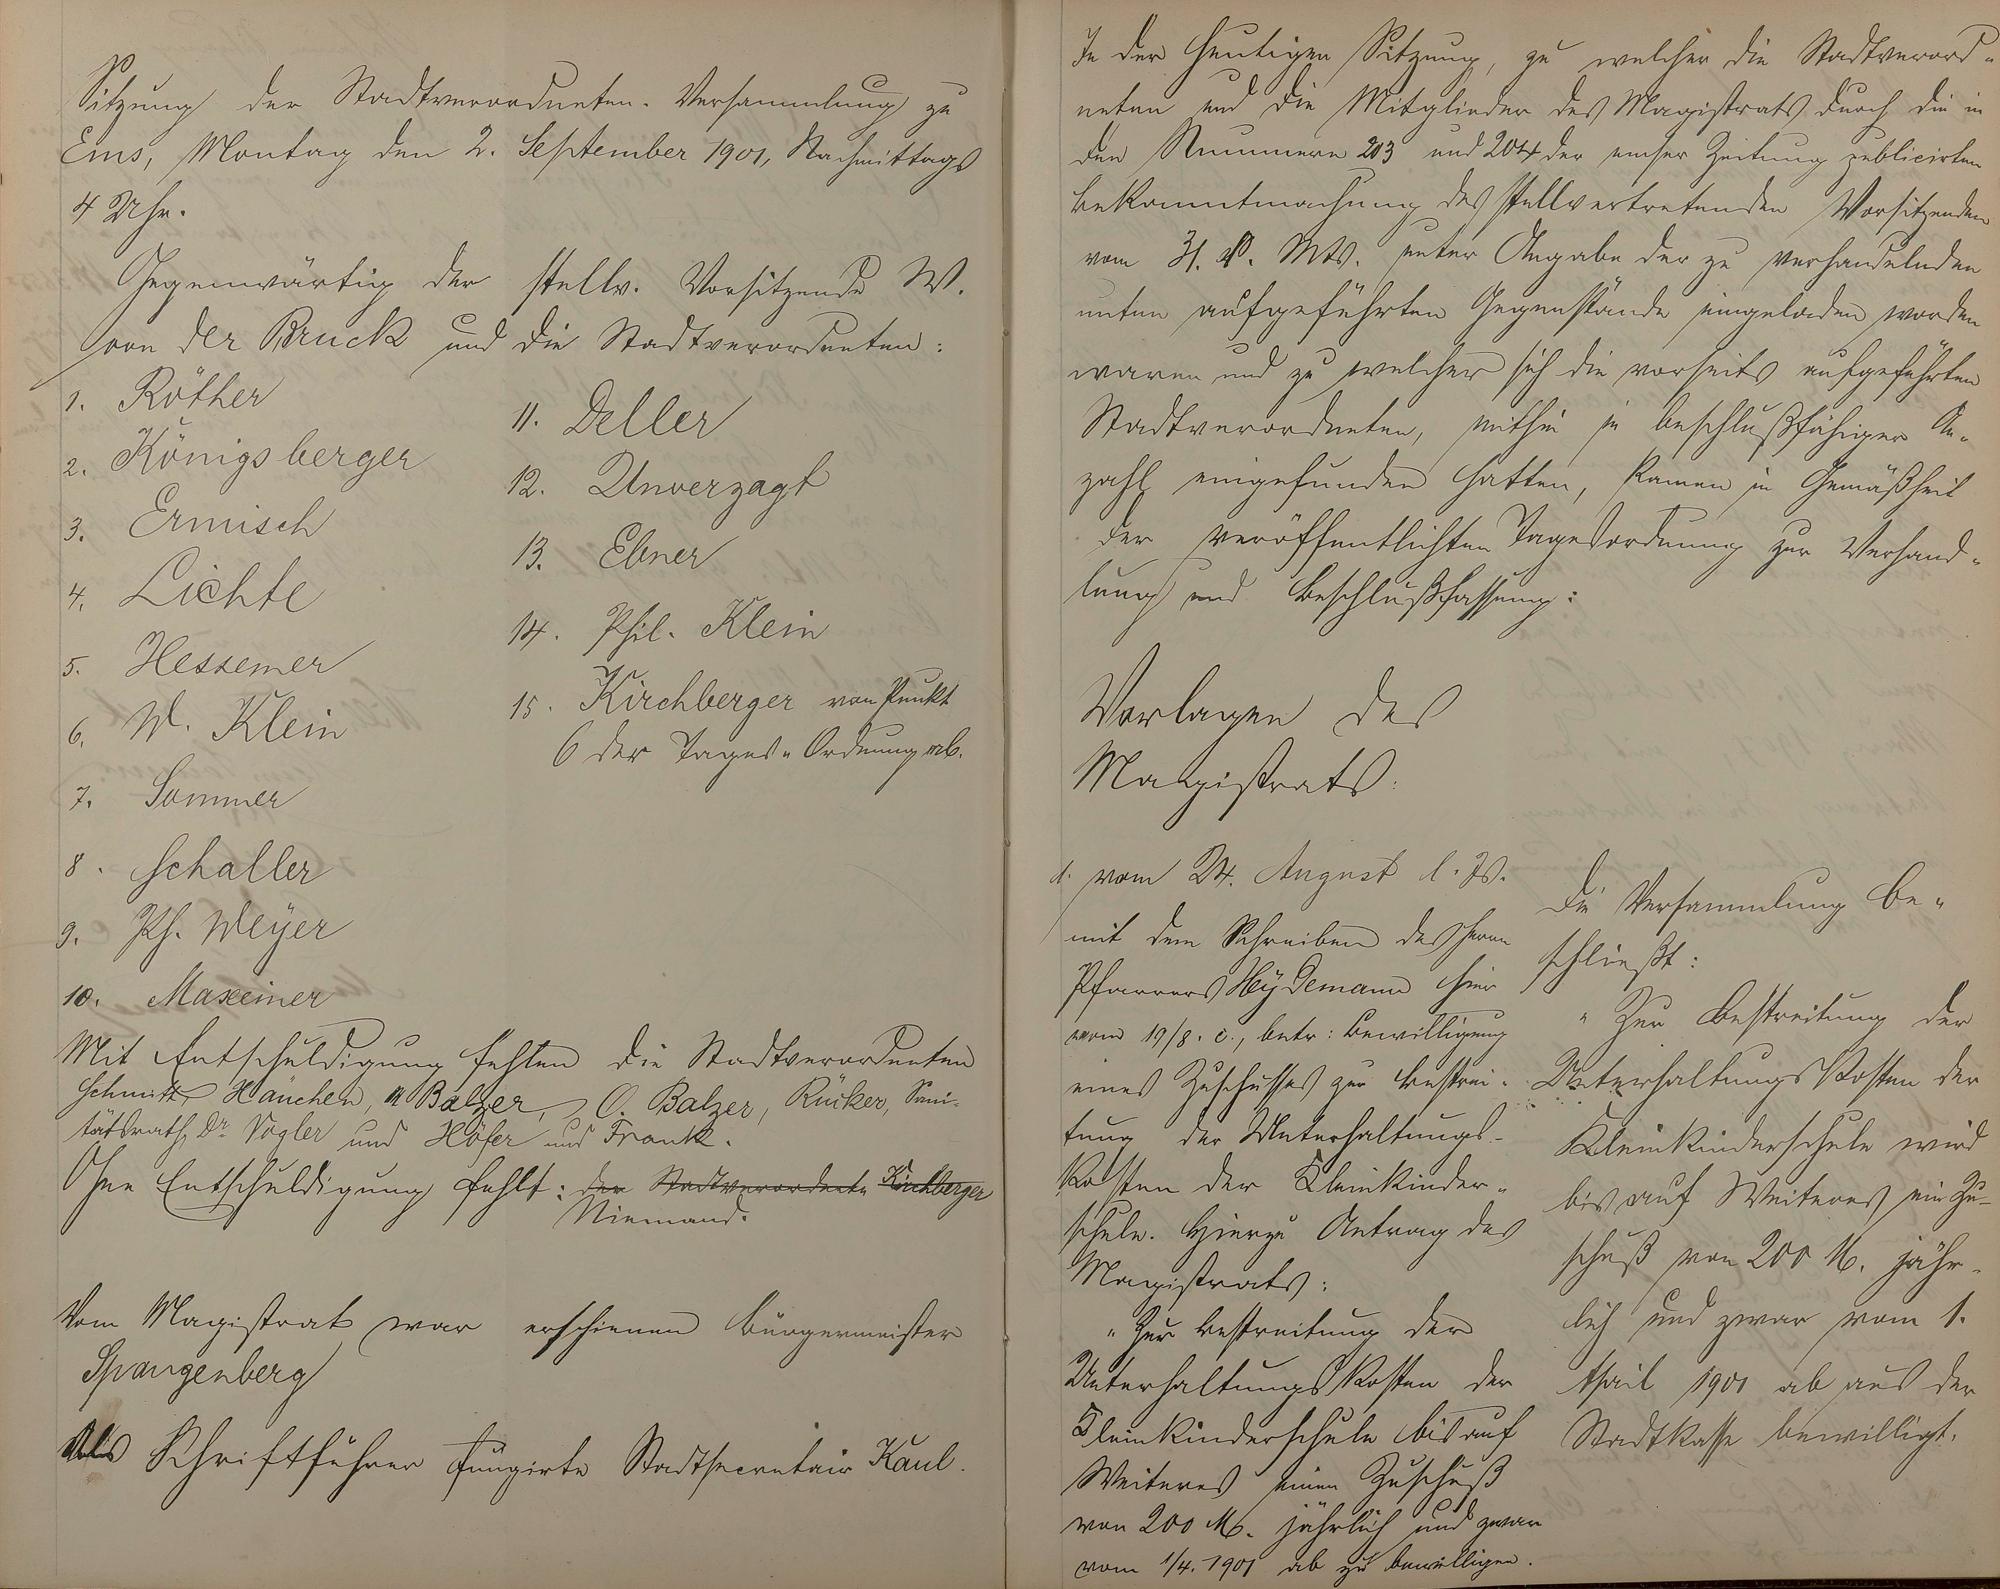 Sitzung der Stadtverordneten-Versammlung zu
Ems, Montag den 2. September 1901, Nachmittags
4 Uhr.
Gegenwärtig der stellv. Vorsitzende W.
von der Bruck und die Stadtverordneten:
1. Röther
2. Königsberger
3. Ermisch
4. Lichte
5. Hessemer
6. W. Klein
7. Sommer
8. Schaller
9. Ph. Weyer
10. Maxeiner
11. Deller
12. Unverzagt
13. Ebner
14. Phil. Klein
15. Kirchberger von Punkt
6 der Tages-Ordnung ab.
Mit Entschuldigung fehlten die Stadtverordneten
Schmitt, Häuchen, Balzer, O. Balzer, Rücker, Sani-
tätsrath Dr Vogler und Höfer und Frank.
Ohne Entschuldigung fehlt: der Stadtverordnete Kirchberger
Niemand.
Vom Magistrat war erschienen Bürgermeister
Spangenberg
Als Schriftführer fungirte Stadtsecretair Kaul.
In der heutigen Sitzung, zu welcher die Stadtverord-
neten und die Mitglieder des Magistrats durch die in
den Nummern 203 und 204 der Emser Zeitung publicirten
Bekanntmachung des stellvertretenden Vorsitzenden
vom 31. v. Mts. unter Angabe der zu verhandelnden
unten aufgeführten Gegenstände eingeladen worden
waren und zu welcher sich die vorseits aufgeführten
Stadtverordneten, mithin in beschlußfähiger An-
zahl eingefunden hatten, kamen in Gemäßheit
der veröffentlichten Tagesordnung zur Verhand-
lung und Beschlußfassung:
Vorlagen des
Magistrats:
1. vom 24. August l. Js.
mit dem Schreiben des Herrn
Pfarrers Heydemann hier
vom 19/8. c., betr: Bewilligung
eines Zuschusses zur Bestrei-
tung der Unterhaltungs-
kosten der Kleinkinder-
schule. Hierzu Antrag des
Magistrats:
"Zur Bestreitung der
Unterhaltungskosten der
Kleinkinderschule bis auf
Weiteres einen Zuschuß
von 200 M. jährlich und zwar
vom 1/4. 1901 ab zu bewilligen.
Die Versammlung be-
schließt:
"Zur Bestreitung der
Unterhaltungskosten der
Kleinkinderschule wird
bis auf Weiteres ein Zu-
schuß von 200 M. jähr-
lich und zwar vom 1.
April 1901 ab aus der
Stadtkasse bewilligt.